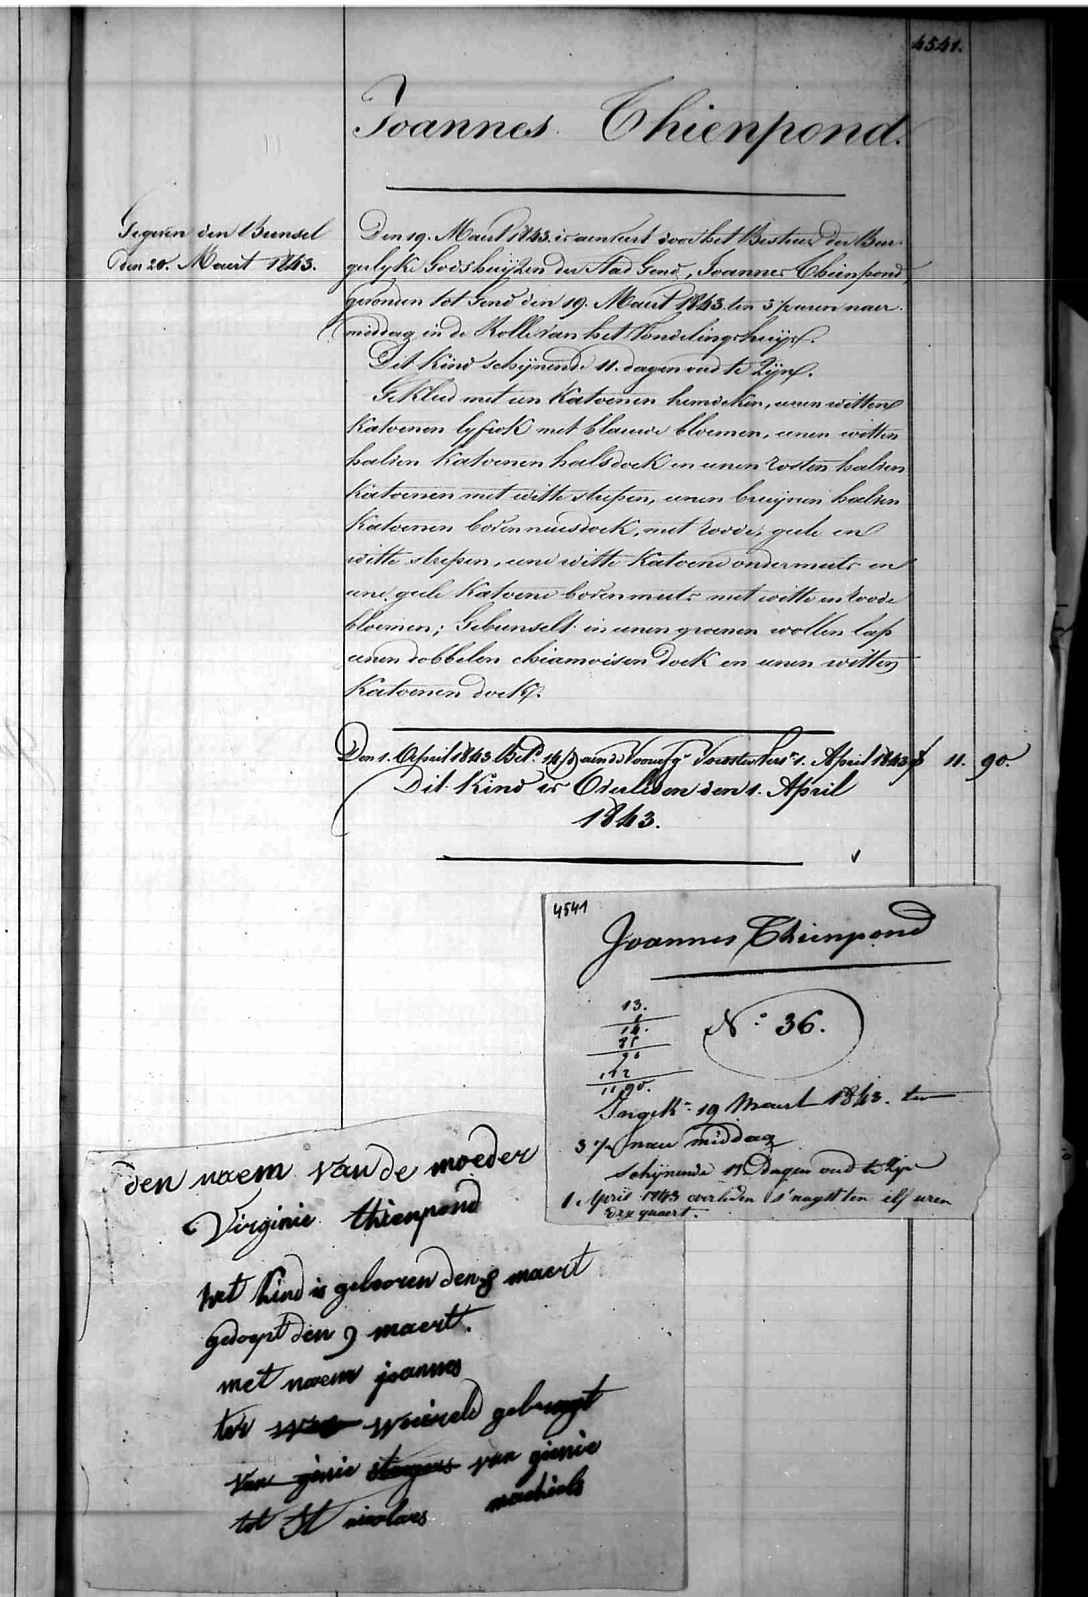 4541.
Joannes Thienpond.
Gegeven den Bunsel
den 20. Maert 1843.
Den 19. Maert 1843. is aenveert door het Bestuer der Bur-
gerlyke Godshuijzen der Stad Gend, Joannes Thienpond,
gevonden tot Gend den 19. Maert 1843. ten 3 ½ uren naer-
middag in de Rolle van het Vondelingshuijs.
Dit Kind schijnende 11. dagen oud te Zijn.
Gekleed met een Katoenen hemdeken, eenen witten
Katoenen lyfrok met blauwe bloemen, eenen witten
halven Katoenen halsdoek en eenen rosten halven
Katoenen met witte strepen, eenen bruijnen halven
Katoenen bovenneusdoek, met roode, geele en
witte strepen, eene witte Katoene ondermuts en
eene geele Katoene bovenmuts met witte en roode
bloemen; Gebunselt in eenen groenen wollen lap
eenen dobbelen chiamoisen doek en eenen witten
Katoenen doek.
Den 1. April 1843 Bet. 14 aen de Voorsz Voedster 1. April 1843 11. 90.
Dit Kind is Overleden den 1. April
1843.
4541
Joannes Thienpond
13.
1
14.
N.º 36.
112
11 90.
Ingek. 19 Maert 1843. ten
3 ½ naer middag
schijnende 11 dagen oud te Zijn
1. April 1843 overleden s'nagts ten elf uren
dry quaert.
den naem van de moeder
Virginie thienpond
het kind is gebooren den 8 maert
gedoopt den 9 maert.
met naem joannes
ter weireld gebragt
van ginie van ginie
tot St nicolaes machiels